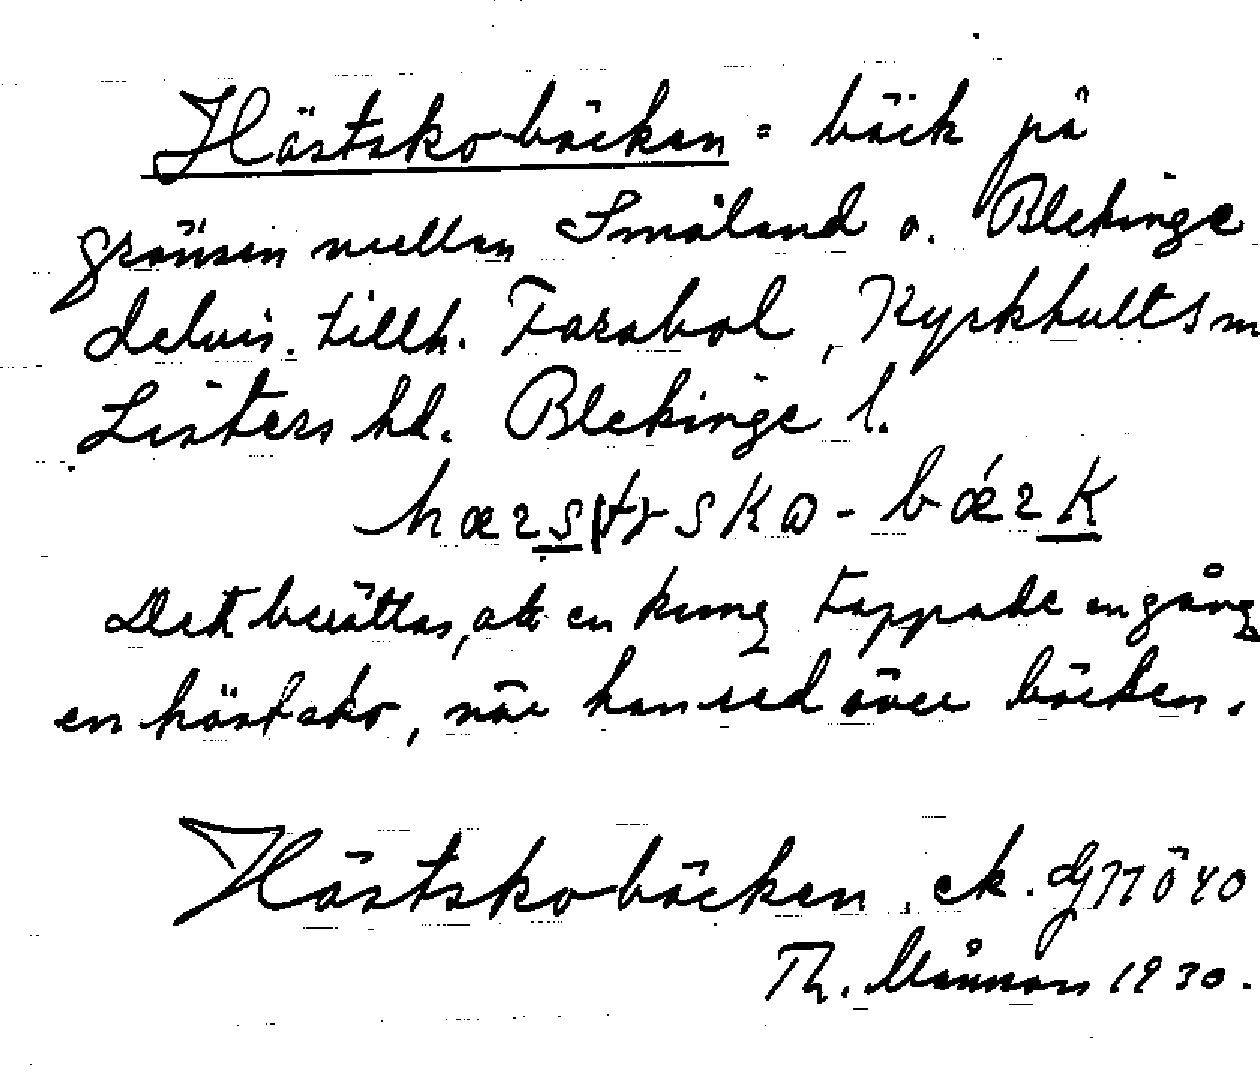 Hästskobäcken = bäck på
gränsen mellan Småland o. Blekinge
delvis. tillh. Farabol, Kyrkhults
Listers hd. Blekinge l.
Det berättas, att en kung tappade en gång
en hästsko, när han red över bäcken.
Hästskobäcken, ek.
Th. 1930.